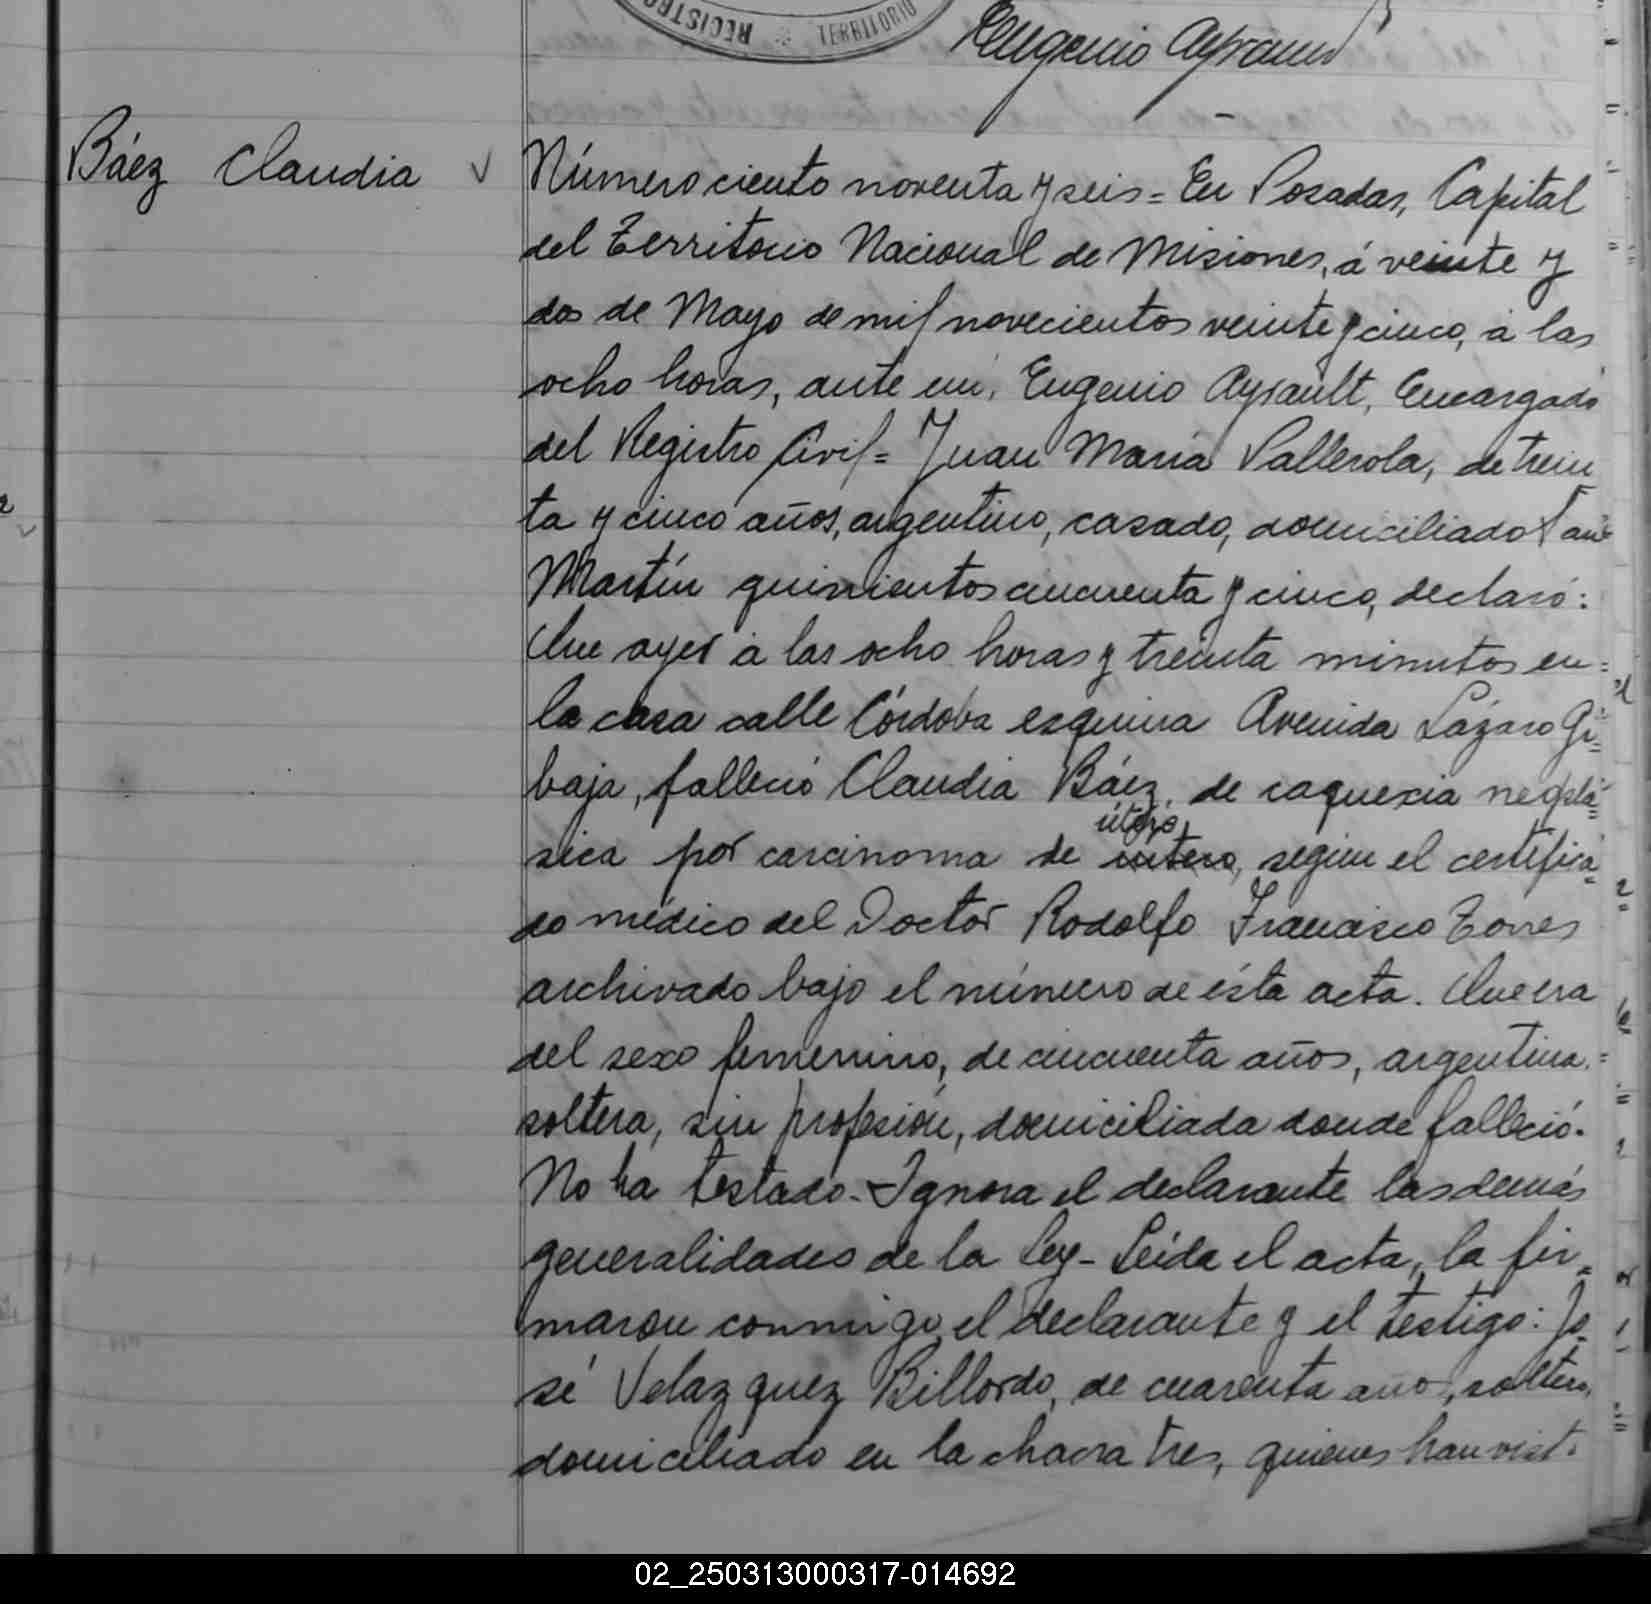 REGISTRO
TERRITORIO
Eugenio Ayrault
Báez Claudia
Número ciento noventa y seis = En Posadas, Capital
del Territorio Nacional de Misiones, á veinte y
dos de Mayo de mil novecientos veinte y cinco, á las
ocho horas, ante mi, Eugenio Ayrault, Encargado
del Registro Civil = Juan María Vallerola, de trein
ta y cinco años, argentino, casado, domiciliado San
Martín quinientos cincuenta y cinco, declaró:
Que ayer á las ocho horas y treinta minutos en
la casa calle Córdoba esquina Avenida Lázaro Gi=
baja, falleció Claudia Báez, de caquexia neoplá=
útero,
sica por carcinoma de utero, según el certifica=
do médico del Doctor Rodolfo Francisco Torres
archivado bajo el número de ésta acta. Que era
del sexo femenino, de cincuenta años, argentina,
soltera, sin profesión, domiciliada donde falleció.
No ha testado - Ignora el declarante las demás
generalidades de la ley - Leída el acta, la fir=
maron conmigo, el declarante y el testigo: Jo=
sé Velazquez Billordo, de cuarenta años, soltero,
domiciliado en la chacra tres, quienes han visto
02_250313000317-014692